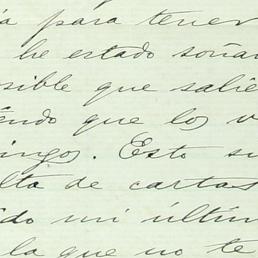 a para tener
he estado soñan
sible que salie
endo que los v
ingos. Esto su
lta de cartas
ido mi últim
la que no te